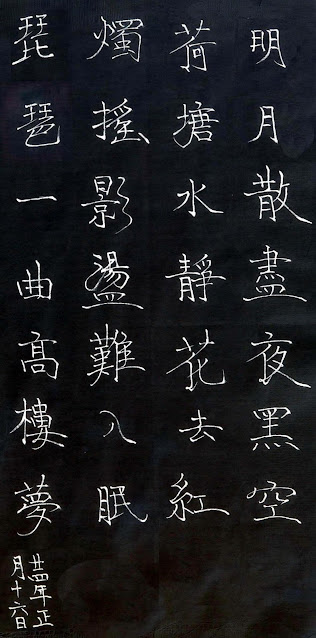 明月散盡夜黑空
荷塘水靜花去紅
燭搖影盪難入眠
琵琶一曲高樓夢
廿四年正
月十六日